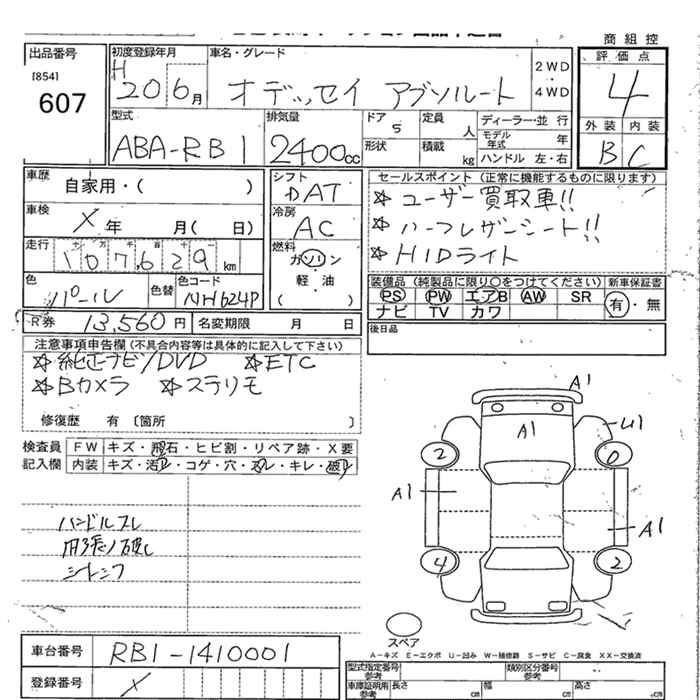 商 組 控
出品番号 初度登録年月 車名・グレード 評 価 点
[854] H 20 6月 オデッセイ アブソルート 2WD・4WD 4
607
型式 排気量 ドア 定員 ディーラー・並 行 外 装 内 装
ABA-RB1 2400cc 5 人 モデル年式 年 B C
形状 積載 kg ハンドル 左・右
車歴 シフト セールスポイント (正常に機能するものに限ります)
自家用・( ) DAT ☆ユーザー買取車!!
車検 冷房 ☆ハーフレザーシート!!
X 年 月( 日) AC ☆HIDライト
走行 十 万 千 百 十 一 燃料
107,629km ガソリン
色 色替 色コード 軽 油 装備品 (純製品に限り○をつけてください) 新車保証書
パール NH624P ( ) PS PW エアB AW SR 有・無
ナビ TV カワ
R券 13,560円 名変期限 月 日 後日品
注意事項申告欄 (不具合内容等は具体的に記入して下さい)
☆純正ナビ/DVD ☆ETC
☆Bカメラ ☆ステリモ
修復歴 有 〔箇所 〕
検査員 FW キズ・飛石・ヒビ割・リペア跡・X要
記入欄 内装 キズ・汚レ・コゲ・穴・スレ・キレ・破レ
A1
A1 U1
2 0
A1 A1
4 2
ハンドルスレ
内張ノ破レ
スペア
A−キズ E−エクボ U−凹み W−補修跡 S−サビ C−腐食 XX−交換済
車台番号 RB1-1410001 型式指定番号 参考 類別区分番号 参考
登録番号 X 車庫証明用 参考 長さ cm 幅 cm 高さ cm